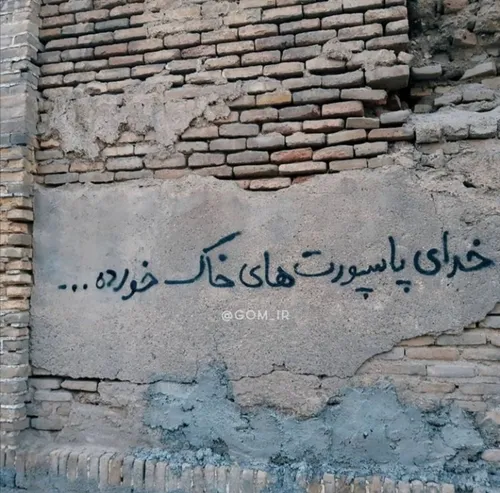 خدای پاسپورت های خاک خورده...
@GOM_IR